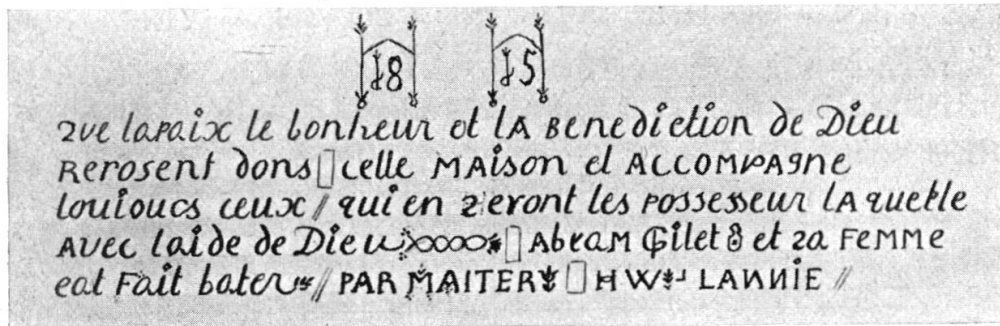 18 15
2ve lapaix le bonheur et lA Benediction de Dieu
Rerosent dons celle MAison el ACCOMPAgne
louioucs ceux // qui en 2eront les possesseur lA queble
AVec laide de Dieu AbrAM Gilet 8 et 2a FeMMe
eat Fait bater // PAR MAITER H W LANNIE //